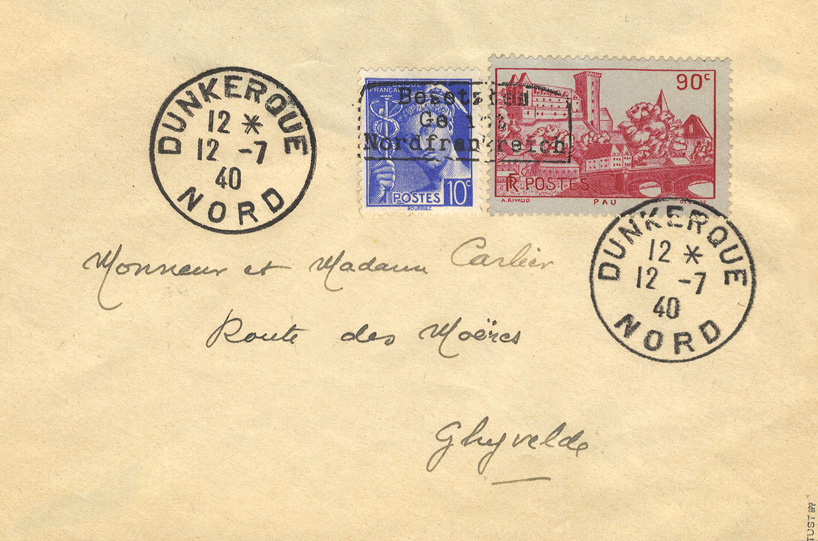 DUNKERQUE
12 *
12 -7
40
NORD
FRANÇAISE
Besetztes
Nordfrankreich
POSTES 10c
90c
RF POSTES
A. RIVAUD PAU
DUNKERQUE
12 *
12 -7
40
NORD
Monsieur et Madame Carlier
Route des Moëres
Ghyvelde